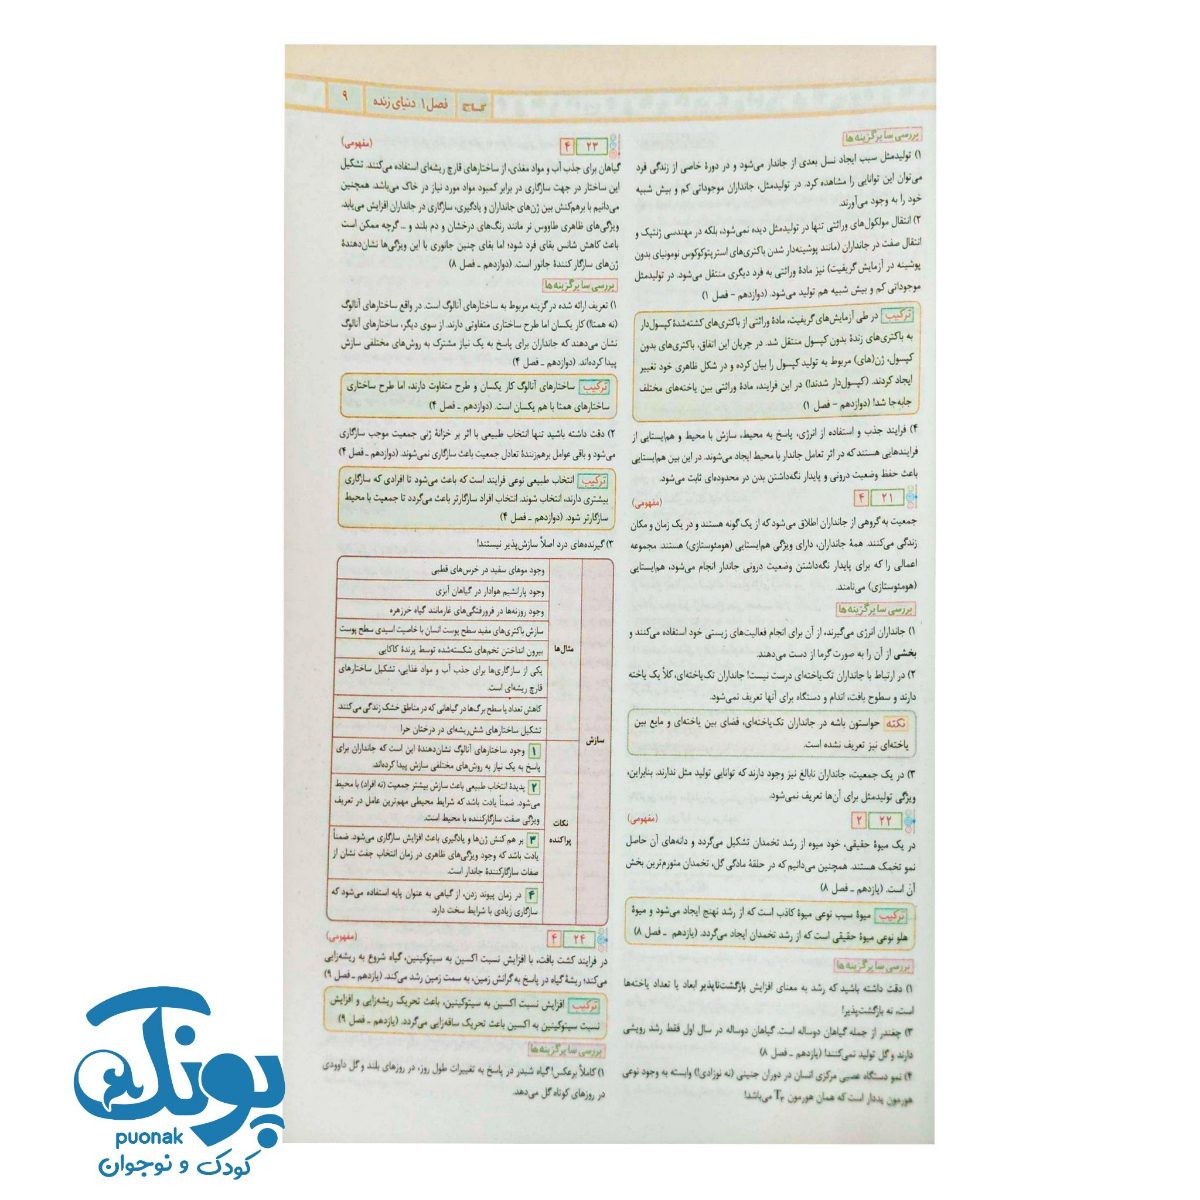 گاج
فصل ۱ دنیای زنده
۹
بررسی سایر گزینه‌ها
۱) تولیدمثل سبب ایجاد نسل بعدی از جاندار می‌شود و در دورهٔ خاصی از زندگی فرد
می‌توان این توانایی را مشاهده کرد. در تولیدمثل، جانداران موجوداتی کم و بیش شبیه
خود را به وجود می‌آورند.
۲) انتقال مولکول‌های وراثتی تنها در تولیدمثل دیده نمی‌شود، بلکه در مهندسی ژنتیک و
انتقال صفت در جانداران (مانند پوشینه‌دار شدن باکتری‌های استرپتوکوکوس نومونیای بدون
پوشینه در آزمایش گریفیت) نیز مادهٔ وراثتی به فرد دیگری منتقل می‌شود. در تولیدمثل
موجوداتی کم و بیش شبیه هم تولید می‌شود. (دوازدهم - فصل ۱)
ترکیب در طی آزمایش‌های گریفیت، مادهٔ وراثتی از باکتری‌های کشته‌شدهٔ کپسول‌دار
به باکتری‌های زندهٔ بدون کپسول منتقل شد. در جریان این اتفاق، باکتری‌های بدون
کپسول، ژن(های) مربوط به تولید کپسول را بیان کرده و در شکل ظاهری خود تغییر
ایجاد کردند. (کپسول‌دار شدند!) در این فرایند، مادهٔ وراثتی بین یاخته‌های مختلف
جابه‌جا شد! (دوازدهم - فصل ۱)
۴) فرایند جذب و استفاده از انرژی، پاسخ به محیط، سازش با محیط و هم‌ایستایی از
فرایندهایی هستند که در اثر تعامل جاندار با محیط ایجاد می‌شوند. در این بین هم‌ایستایی
باعث حفظ وضعیت درونی و پایدار نگه‌داشتن بدن در محدوده‌ای ثابت می‌شود.
۲۱ ۴ (مفهومی)
جمعیت به گروهی از جانداران اطلاق می‌شود که از یک گونه هستند و در یک زمان و مکان
زندگی می‌کنند. همهٔ جانداران، دارای ویژگی هم‌ایستایی (هومئوستازی) هستند. مجموعه
اعمالی را که برای پایدار نگه‌داشتن وضعیت درونی جاندار انجام می‌شود، هم‌ایستایی
(هومئوستازی) می‌نامند.
بررسی سایر گزینه‌ها
۱) جانداران انرژی می‌گیرند، از آن برای انجام فعالیت‌های زیستی خود استفاده می‌کنند و
بخشی از آن را به صورت گرما از دست می‌دهند.
۲) در ارتباط با جانداران تک‌یاخته‌ای درست نیست! جانداران تک‌یاخته‌ای، کلاً یک یاخته
دارند و سطوح بافت، اندام و دستگاه برای آنها تعریف نمی‌شود.
نکته حواستون باشه در جانداران تک‌یاخته‌ای، فضای بین یاخته‌ای و مایع بین
یاخته‌ای نیز تعریف نشده است.
۳) در یک جمعیت، جانداران نابالغ نیز وجود دارند که توانایی تولید مثل ندارند. بنابراین،
ویژگی تولیدمثل برای آن‌ها تعریف نمی‌شود.
۲۲ ۲ (مفهومی)
در یک میوهٔ حقیقی، خود میوه از رشد تخمدان تشکیل می‌گردد و دانه‌های آن حاصل
نمو تخمک هستند. همچنین می‌دانیم که در حلقهٔ مادگی گل، تخمدان متورم‌ترین بخش
آن است. (یازدهم ـ فصل ۸)
ترکیب میوهٔ سیب نوعی میوهٔ کاذب است که از رشد نهنج ایجاد می‌شود و میوهٔ
هلو نوعی میوهٔ حقیقی است که از رشد تخمدان ایجاد می‌گردد. (یازدهم ـ فصل ۸)
بررسی سایر گزینه‌ها
۱) دقت داشته باشید که رشد به معنای افزایش بازگشت‌ناپذیر ابعاد یا تعداد یاخته‌ها
است، نه بازگشت‌پذیر!
۳) چغندر از جمله گیاهان دوساله است. گیاهان دوساله در سال اول فقط رشد رویشی
دارند و گل تولید نمی‌کنند! (یازدهم ـ فصل ۸)
۴) نمو دستگاه عصبی مرکزی انسان در دوران جنینی (نه نوزادی!) وابسته به وجود نوعی
هورمون یددار است که همان هورمون T۳ می‌باشد!
۲۳ ۴ (مفهومی)
گیاهان برای جذب آب و مواد مغذی، از ساختارهای قارچ ریشه‌ای استفاده می‌کنند. تشکیل
این ساختار در جهت سازگاری در برابر کمبود مواد مورد نیاز در خاک می‌باشد. همچنین
می‌دانیم با برهم‌کنش بین ژن‌های جانداران و یادگیری، سازگاری در جانداران افزایش می‌یابد.
ویژگی‌های ظاهری طاووس نر مانند رنگ‌های درخشان و دم بلند و ... گرچه ممکن است
باعث کاهش شانس بقای فرد شود؛ اما بقای چنین جانوری با این ویژگی‌ها نشان‌دهندهٔ
ژن‌های سازگار کنندهٔ جانور است. (دوازدهم ـ فصل ۸)
بررسی سایر گزینه‌ها
۱) تعریف ارائه شده در گزینه مربوط به ساختارهای آنالوگ است. در واقع ساختارهای آنالوگ
(نه همتا!) کار یکسان اما طرح ساختاری متفاوتی دارند. از سوی دیگر، ساختارهای آنالوگ
نشان می‌دهند که جانداران برای پاسخ به یک نیاز مشترک به روش‌های مختلفی سازش
پیدا کرده‌اند. (دوازدهم ـ فصل ۴)
ترکیب ساختارهای آنالوگ کار یکسان و طرح متفاوت دارند، اما طرح ساختاری
ساختارهای همتا با هم یکسان است. (دوازدهم ـ فصل ۴)
۲) دقت داشته باشید تنها انتخاب طبیعی با اثر بر خزانهٔ ژنی جمعیت موجب سازگاری
می‌شود و باقی عوامل برهم‌زنندهٔ تعادل جمعیت باعث سازگاری نمی‌شوند. (دوازدهم ـ فصل ۴)
ترکیب انتخاب طبیعی نوعی فرایند است که باعث می‌شود تا افرادی که سازگاری
بیشتری دارند، انتخاب شوند. انتخاب افراد سازگارتر باعث می‌گردد تا جمعیت با محیط
سازگارتر شود. (دوازدهم ـ فصل ۴)
۳) گیرنده‌های درد اصلاً سازش‌پذیر نیستند!
سازش
مثال‌ها
وجود موهای سفید در خرس‌های قطبی
وجود پارانشیم هوادار در گیاهان آبزی
وجود روزنه‌ها در فرورفتگی‌های غارمانند گیاه خرزهره
سازش باکتری‌های مفید سطح پوست انسان با خاصیت اسیدی سطح پوست
بیرون انداختن تخم‌های شکسته‌شده توسط پرندهٔ کاکایی
یکی از سازگاری‌ها برای جذب آب و مواد غذایی، تشکیل ساختارهای
قارچ ریشه‌ای است.
کاهش تعداد یا سطح برگ‌ها در گیاهانی که در مناطق خشک زندگی می‌کنند.
تشکیل ساختارهای شش‌ریشه‌ای در درختان حرا
نکات
پراکنده
۱ وجود ساختارهای آنالوگ نشان‌دهندهٔ این است که جانداران برای
پاسخ به یک نیاز به روش‌های مختلفی سازش پیدا کرده‌اند.
۲ پدیدهٔ انتخاب طبیعی باعث سازش بیشتر جمعیت (نه افراد) با محیط
می‌شود. ضمناً یادت باشد که شرایط محیطی مهم‌ترین عامل در تعریف
ویژگی صفت سازگارکننده با محیط است.
۳ بر هم کنش ژن‌ها و یادگیری باعث افزایش سازگاری می‌شود. ضمناً
یادت باشد که وجود ویژگی‌های ظاهری در زمان انتخاب جفت نشان از
صفات سازگارکنندهٔ جاندار است.
۴ در زمان پیوند زدن، از گیاهی به عنوان پایه استفاده می‌شود که
سازگاری زیادی با شرایط سخت دارد.
۲۴ ۴ (مفهومی)
در فرایند کشت بافت، با افزایش نسبت اکسین به سیتوکینین، گیاه شروع به ریشه‌زایی
می‌کند؛ ریشهٔ گیاه در پاسخ به گرانش زمین، به سمت زمین رشد می‌کند. (یازدهم ـ فصل ۹)
ترکیب افزایش نسبت اکسین به سیتوکینین، باعث تحریک ریشه‌زایی و افزایش
نسبت سیتوکینین به اکسین باعث تحریک ساقه‌زایی می‌گردد. (یازدهم ـ فصل ۹)
بررسی سایر گزینه‌ها
۱) کاملاً برعکس! گیاه شبدر در پاسخ به تغییرات طول روز، در روزهای بلند و گل داوودی
در روزهای کوتاه گل می‌دهد.
پونک
puonak
کودک و نوجوان